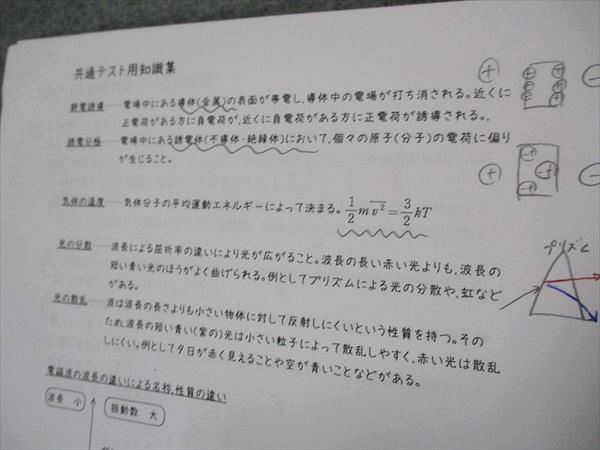 共通テスト用知識集
静電誘導 電場中にある導体(金属)の表面が帯電し、導体中の電場が打ち消される。近くに
正電荷がある方に負電荷が、近くに負電荷がある方に正電荷が誘導される。
誘電分極 電場中にある誘電体(不導体・絶縁体)において、個々の原子(分子)の電荷に偏り
が生じること。
気体の温度 気体分子の平均運動エネルギーによって決まる。 1/2 m v̅² = 3/2 kT
光の分散 波長による屈折率の違いにより光が広がること。波長の長い赤い光よりも、波長の
短い青い光のほうがよく曲げられる。例としてプリズムによる光の分散や、虹など
がある。
プリズム
光の散乱 波は波長の長さよりも小さい物体に対して反射しにくいという性質を持つ。その
ため、波長の短い青い(紫の)光は小さい粒子によって散乱しやすく、赤い光は散乱
しにくい。例として夕日が赤く見えることや空が青いことなどがある。
電磁波の波長の違いによる名称、性質の違い
波長 小 振動数 大